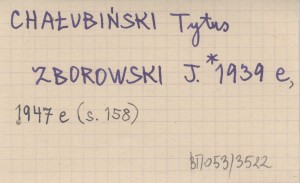 CHAŁUBIŃSKI Tytus
ZBOROWSKI J.* 1939 e,
1947 e (s. 158)
BT/053/3522